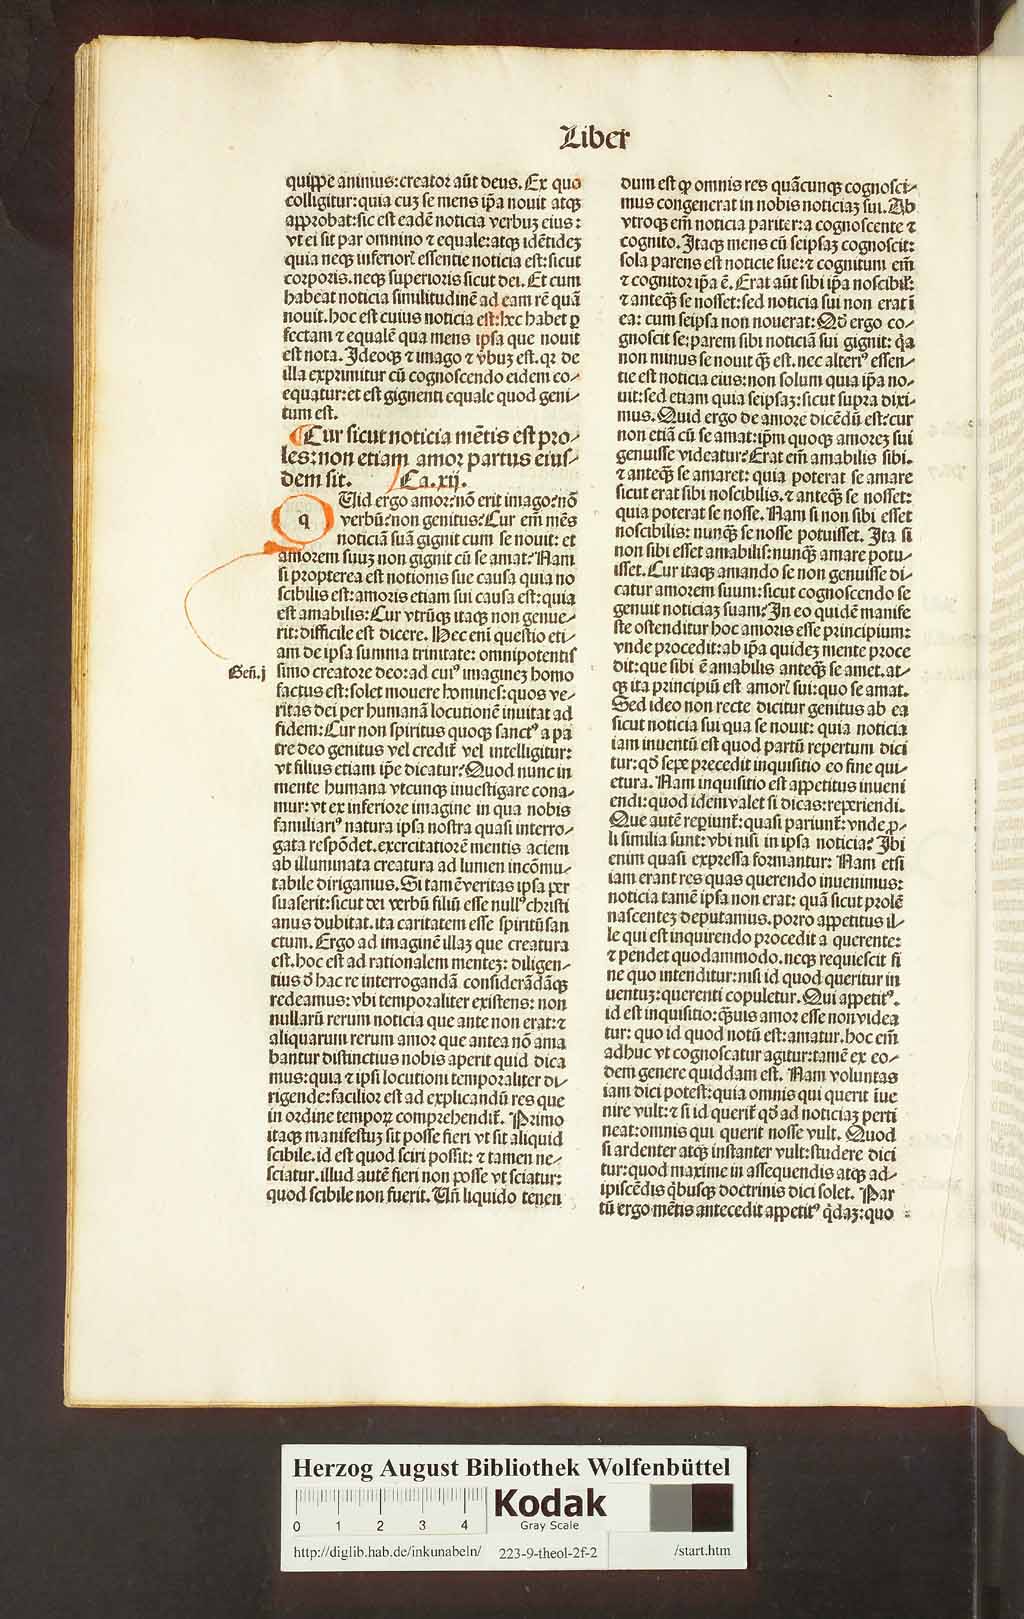 Liber
quippe animus:creator aūt deus. Ex quo
colligitur:quia cuꝫ se mens ip̄a nouit atqꝫ
approbat:sic est eadē noticia verbuꝫ eius:
vt ei sit par omnino ⁊ equale:atqꝫ idētideꝫ
quia neqꝫ inferioris essentie noticia est:sicut
corporis.neqꝫ superioris sicut dei. Et cum
habeat noticia similitudinē ad eam rē quā
nouit.hoc est cuius noticia est:hec habet ꝑ
fectam ⁊ equalē qua mens ipsa que nouit
est nota. Ideoqꝫ ⁊ imago ⁊ v̄buꝫ est.qr de
illa exprimitur cū cognoscendo eidem co-
equatur:et est gignenti equale quod geni-
tum est.
Cur sicut noticia mētis est pro-
les:non etiam amor partus eius-
dem sit. Ca.xij.
q Uid ergo amor?nō erit imago?nō
verbū?non genitus?Cur em̄ mēs
noticiā suā gignit cum se nouit: et
amorem suuꝫ non gignit cū se amat?Nam
si propterea est notionis sue causa quia no
scibilis est:amoris etiam sui causa est:quia
est amabilis:Cur vtrūqꝫ itaqꝫ non genue-
rit:difficile est dicere. Hec enī questio eti-
am de ipsa summa trinitate: omnipotentis
Geñ.j
simo creatore deo:ad cuiꝰ imagineꝫ homo
factus est:solet mouere homines:quos ve-
ritas dei per humanā locutionē inuitat ad
fidem:Cur non spiritus quoqꝫ sanctꝰ a pa
tre deo genitus vel credit̄ vel intelligitur:
vt filius etiam ip̄e dicatur?Quod nunc in
mente humana vtcunqꝫ inuestigare cona-
mur:vt ex inferiore imagine in qua nobis
familiariꝰ natura ipsa nostra quasi interro-
gata respōdet.exercitatiorē mentis aciem
ab illuminata creatura ad lumen incōmu-
tabile dirigamus. Si tamē veritas ipsa per
suaserit:sicut dei verbū filiū esse nullꝰ christi
anus dubitat.ita caritatem esse spiritū san
ctum. Ergo ad imaginē illaꝫ que creatura
est.hoc est ad rationalem menteꝫ: diligen-
tius d̄ hac re interrogandā considerādāqꝫ
redeamus:vbi temporaliter existens: non
nullarū rerum noticia que ante non erat:⁊
aliquarum rerum amor que antea nō ama
bantur distinctius nobis aperit quid dica
mus:quia ⁊ ipsi locutioni temporaliter di-
rigende:facilior est ad explicandū res que
in ordine tempoꝝ comprehendit̄. Primo
itaqꝫ manifestuꝫ sit posse fieri vt sit aliquid
scibile.id est quod sciri possit: ⁊ tamen ne-
sciatur.illud autē fieri non posse vt sciatur:
quod scibile non fuerit. Uñ liquido tenen
dum est ꝙ omnis res quācunqꝫ cognosci-
mus congenerat in nobis noticiaꝫ sui. Ab
vtroqꝫ em̄ noticia pariter:a cognoscente ⁊
cognito. Itaqꝫ mens cū seipsaꝫ cognoscit:
sola parens est noticie sue:⁊ cognitum em̄
⁊ cognitor ip̄a ē. Erat aūt sibi ip̄a noscibil̄:
⁊ anteqꝫ̄ se nosset:sed noticia sui non erat ī
ea: cum seipsa non nouerat: Qd̄ ergo co-
gnoscit se:parem sibi noticiā sui gignit: q̄a
non minus se nouit qꝫ̄ est.nec alteriꝰ essen-
tie est noticia eius:non solum quia ip̄a no-
uit:sed etiam quia seipsaꝫ:sicut supra dixi-
mus. Quid ergo de amore dicēdū est?cur
non etiā cū se amat:ip̄m quoqꝫ amoreꝫ sui
genuisse videatur?Erat em̄ amabilis sibi.
⁊ anteqꝫ̄ se amaret: quia poterat se amare
sicut erat sibi noscibilis.⁊ anteqꝫ̄ se nosset:
quia poterat se nosse. Nam si non sibi esset
noscibilis: nunqꝫ̄ se nosse potuisset. Ita si
non sibi esset amabilis:nunqꝫ̄ amare potu-
isset. Cur itaqꝫ amando se non genuisse di-
catur amorem suum:sicut cognoscendo se
genuit noticiaꝫ suam?In eo quidē manife
ste ostenditur hoc amoris esse principium:
vnde procedit:ab ip̄a quideꝫ mente proce
dit:que sibi ē amabilis anteqꝫ̄ se amet.at-
qꝫ ita principiū est amoris sui:quo se amat.
Sed ideo non recte dicitur genitus ab ea
sicut noticia sui qua se nouit: quia noticia
iam inuentū est quod partū repertum dici
tur:qd̄ sepe precedit inquisitio eo fine qui-
etura. Nam inquisitio est appetitus inueni
endi:quod idem valet si dicas:reperiendi.
Que autē reperiunt̄:quasi pariunt̄:vnde ꝓ-
li similia sunt:vbi nisi in ipsa noticia? Ibi
enim quasi expressa formantur: Nam etsi
iam erant res quas querendo inuenimus:
noticia tamē ipsa non erat: quā sicut prolē
nascenteꝫ deputamus.porro appetitus il-
le qui est inquirendo procedit a querente:
⁊ pendet quodammodo.neqꝫ requiescit fi
ne quo intenditur:nisi id quod queritur in
uentuꝫ:querenti copuletur. Qui appetitꝰ.
id est inquisitio:qꝫ̄uis amor esse non videa
tur: quo id quod notū est:amatur.hoc em̄
adhuc vt cognoscatur agitur:tamē ex eo-
dem genere quiddam est. Nam voluntas
iam dici potest:quia omnis qui querit īue
nire vult:⁊ si id querit̄ qd̄ ad noticiaꝫ perti
neat:omnis qui querit nosse vult. Quod
si ardenter atqꝫ instanter vult:studere dici
tur:quod maxime in assequendis atqꝫ ad-
ipiscēdis qbusqꝫ doctrinis dici solet. Par
tū ergo mētis antecedit appetitꝰ q̄daꝫ:quo
Herzog August Bibliothek Wolfenbüttel
0 1 2 3 4
Kodak
Gray Scale
http://diglib.hab.de/inkunabeln/ 223-9-theol-2f-2 /start.htm